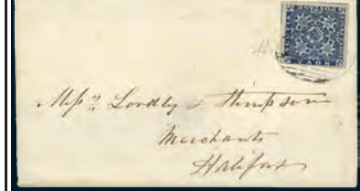 Messrs Lordly & Stimpson
Merchants
Halifax